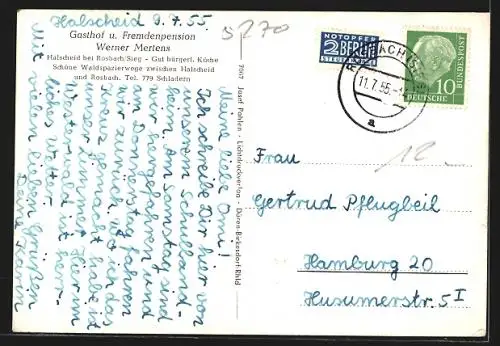 Halscheid 9.7.55.
5270
Gasthof u. Fremdenpension
Werner Mertens
Halscheid bei Rosbach/Sieg - Gut bürgerl. Küche
Schöne Waldspazierwege zwischen Halscheid
und Rosbach. Tel. 779 Schladern
Meine liebe Omi!
Ich schreibe Dir hier von
unserem Schulland-
heim. Am Sonnstag sind
wir hergefahren und
am Donnerstag fahren
wir zurück. Wo ich das
Kreuz gemacht habe ist
unser Zimmer. Hier im
Westerwald ist herr-
liches Wetter.
Mit vielen lieben Grüßen
Deine Karin
7507 Josef Pohlen - Lichtdruckwerken - Düren-Birkesdorf-Rhld
NOTOPFER
2 BERLIN
STEUERMARKE
11.7.55.
a
10
DEUTSCHE
BUNDESPOST
12
Frau
Gertrud Pflugbeil
Hamburg 20
Husumerstr. 5 I